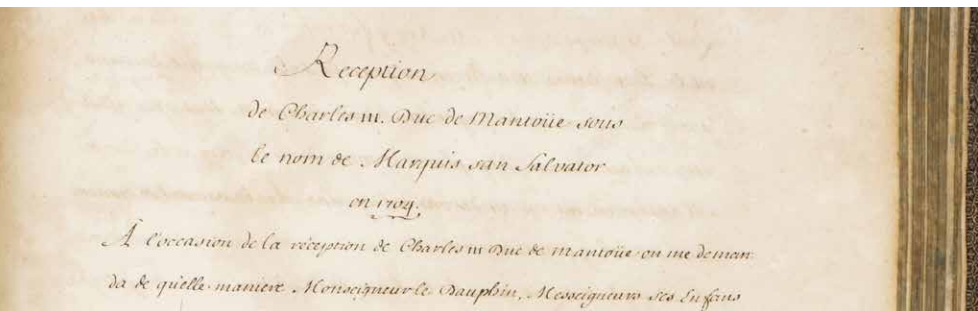 Reception
de Charles III. Duc de Mantoüe sous
le nom de Marquis san Salvator
en 1704.
A l'occasion de la réception de Charles III Duc de mantoüe on me deman
da de quelle maniere Monseigneur le Dauphin, Messeigneurs ses Enfans